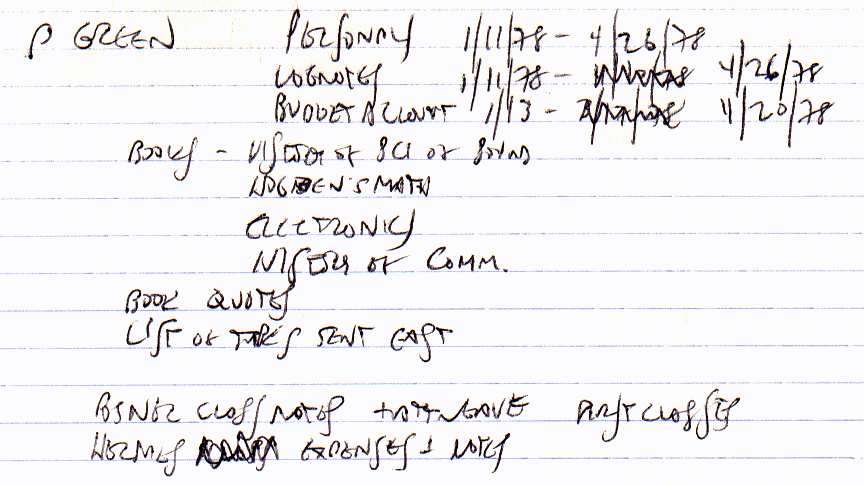 P GREEN PERSONAL 1/11/78 - 4/26/78
LOGNOTES 1/11/78 - 4/26/78
BUDGET ACCOUNT 1/13 - 4/20/78
BOOKS - HISTORY OF SCI OF SOUND
HOGBEN'S MATH
ELECTRONICS
HISTORY OF COMM.
BOOK QUOTES
LIST OF TAPES SENT EAST
CLASS NOTES CLASSES
HERMES EXPENSES + NOTES